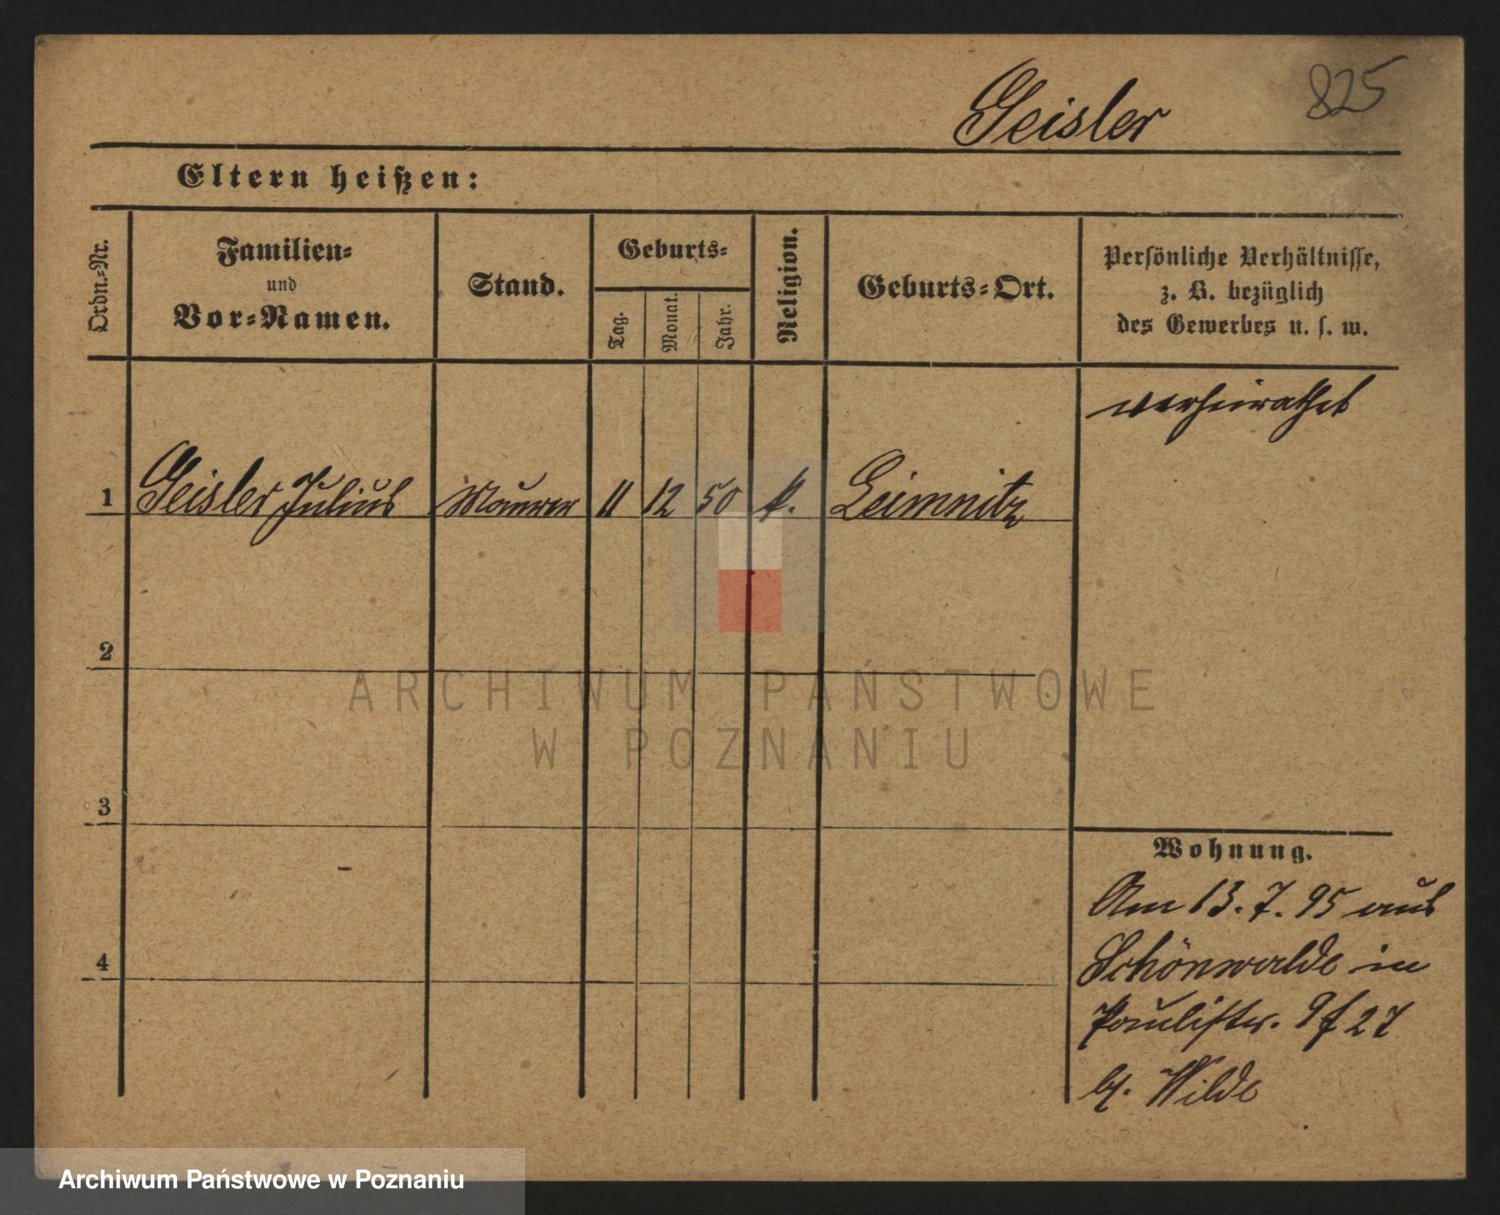 Geisler
825
Eltern heißen:
Ordn.-Nr.
Familien-
und
Vor-Namen.
Stand.
Geburts-
Tag.
Monat.
Jahr.
Religion.
Geburts-Ort.
Persönliche Verhältnisse,
z. B. bezüglich
des Gewerbes u. s. w.
verheirathet
1 Geisler Julius Maurer 11 12 50 k. Leimnitz
2
ARCHIWUM PAŃSTWOWE
W POZNANIU
3
4
Wohnung.
Am 13. 7. 95 aus
Schönwalde in
Paulistr. 9 f 27
b. Wilde
Archiwum Państwowe w Poznaniu